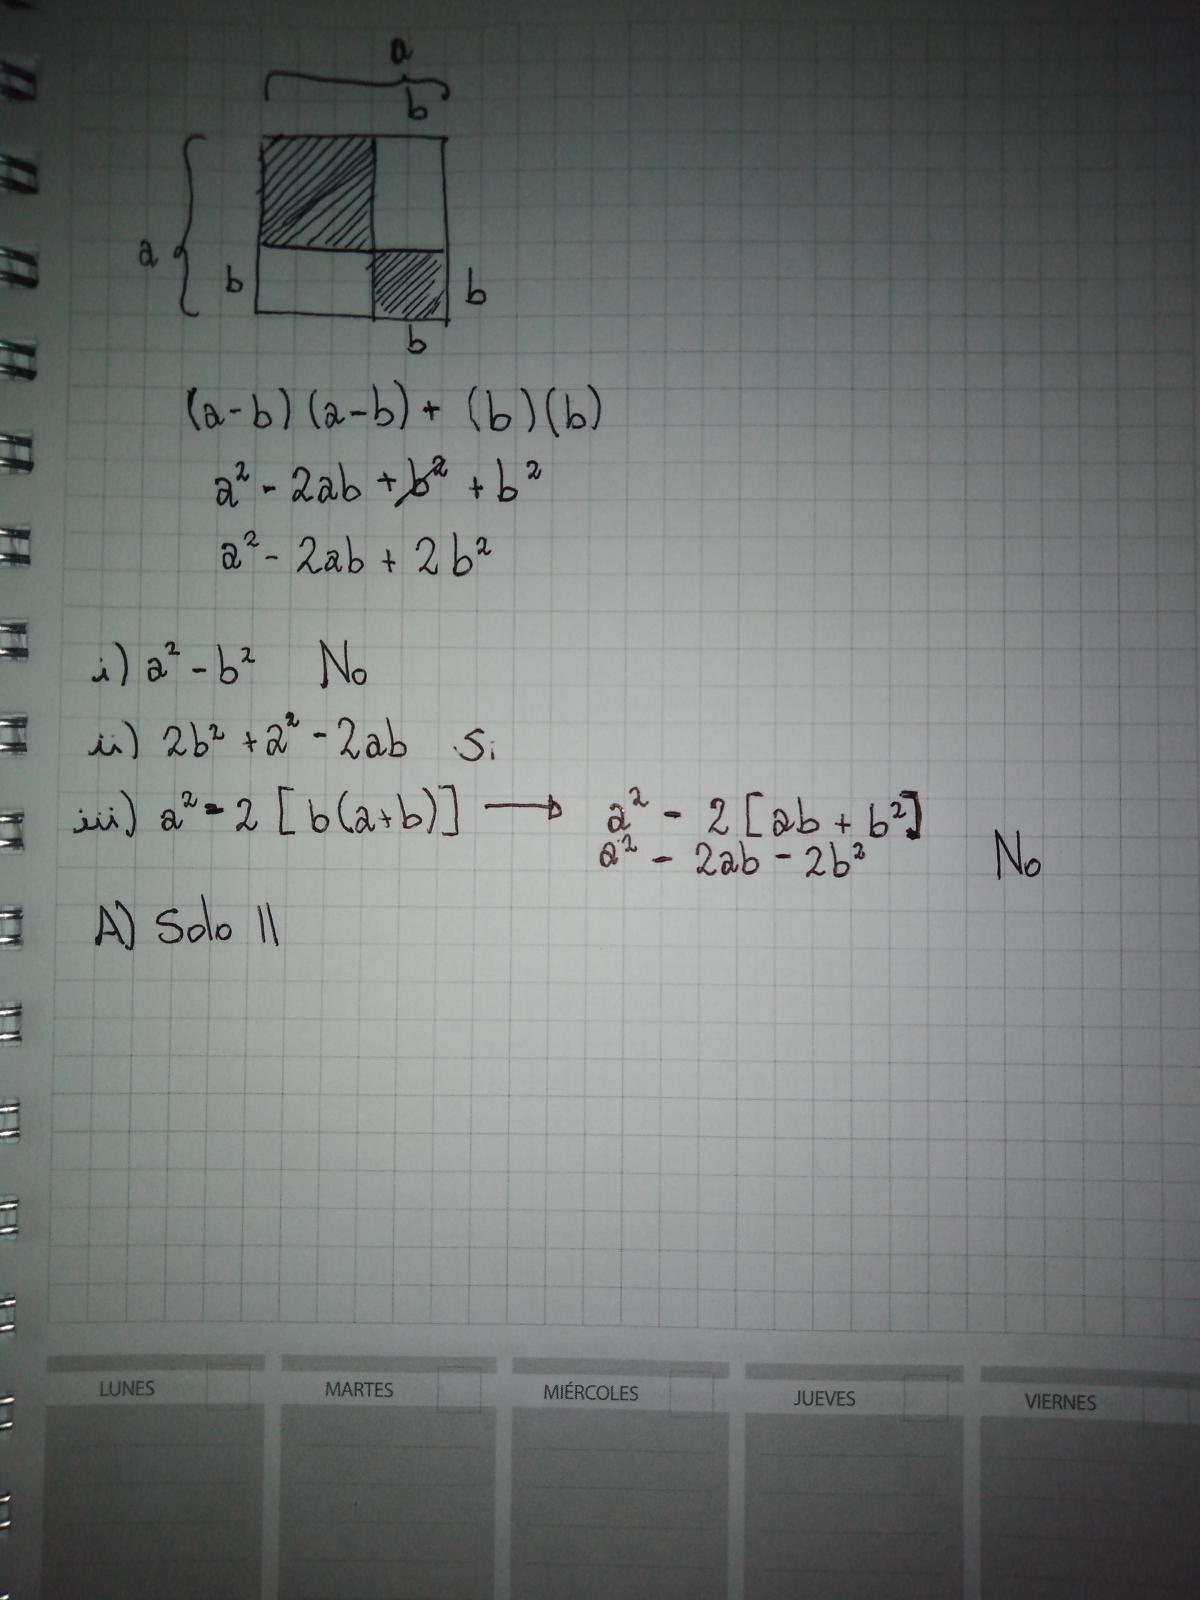 a
b
a
b
b
b
(a-b) (a-b) + (b)(b)
a² - 2ab + b² + b²
a² - 2ab + 2b²
i) a² - b² No
ii) 2b² + a² - 2ab Si
iii) a² - 2 [b(a+b)] → a² - 2 [ab + b²]
a² - 2ab - 2b² No
A) Solo II
LUNES MARTES MIÉRCOLES JUEVES VIERNES